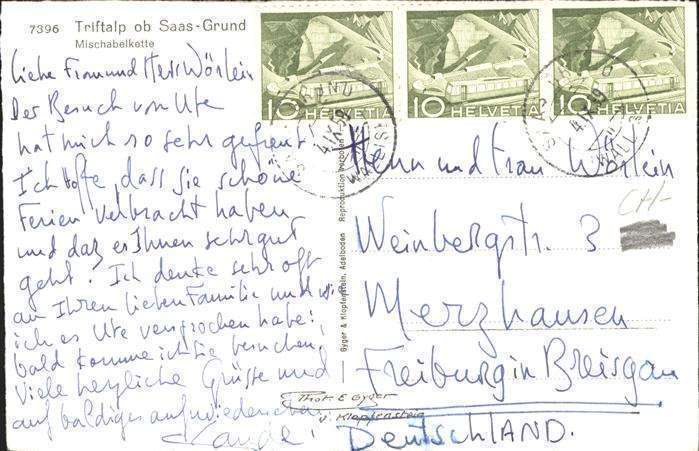 7396 Triftalp ob Saas-Grund
Mischabelkette
Liebe Frau und Herr Wörlein
Der Besuch von Ute
hat mich so sehr gefreut
Ich hoffe, dass Sie schöne
Ferien verbracht haben
und daz es Ihnen sehr gut
geht. Ich denke sehr oft
an Ihren lieben Familie und wie
ich es Ute versprochen habe:
bald komme ich Sie besuchen,
Viele herzliche Grüsse und
auf baldiges auf wiedersehen
10 HELVETIA
10 HELVETIA
10 HELVETIA
4.IX.59
4.IX.59
Gyger & Klopfenstein, Adelboden Reproduktion verboten
Herrn und Frau Wörlein
CH/-
Weinbergstr. 3
Merzhausen
Freiburg in Breisgau
Deutschland.
Phot. E Gyger
u. Klopfenstein